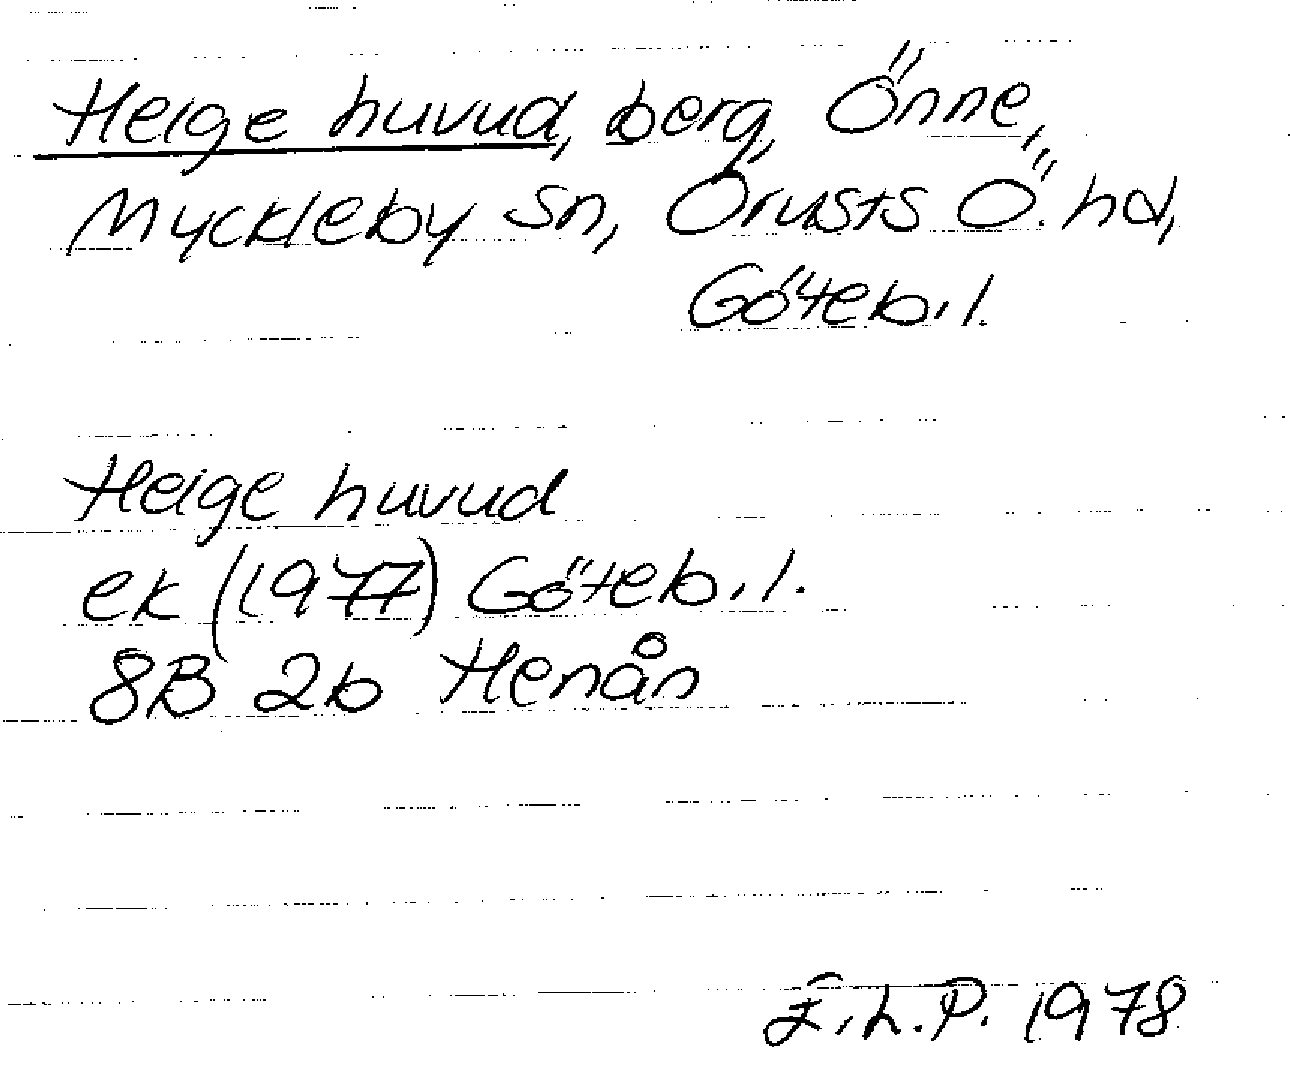 Helge huvud, berg, Önne,
Myckleby sn, Orusts Ö. hd,
Göteb. l.
Helge huvud
ek (1977) Göteb. l.
8B 2b Henån
E.L.P. 1978